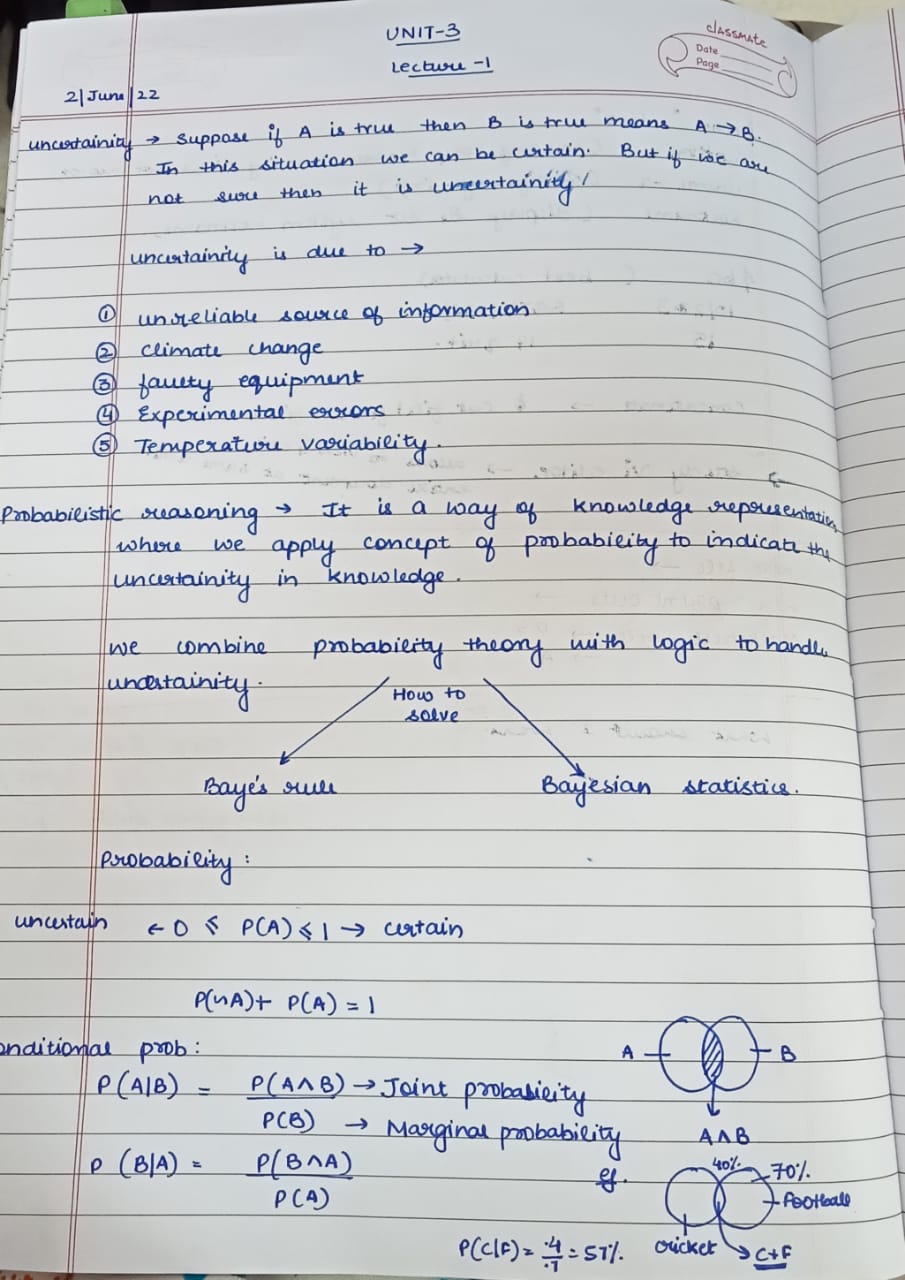 UNIT-3
Lecture -1
classmate
Date
Page
2|June|22
uncertainity → Suppose if A is true then B is true means A → B.
In this situation we can be certain. But if we are
not sure then it is uncertainity!
uncertainity is due to →
① unreliable source of information
② climate change
③ faulty equipment
④ Experimental errors
⑤ Temperature variability.
Probabilistic reasoning → It is a way of knowledge representation
where we apply concept of probability to indicate the
uncertainity in knowledge.
we combine probability theory with logic to handle
uncertainity.
How to
solve
Baye's rule
Bayesian statistics.
Probability :
uncertain ← 0 ≤ P(A) ≤ 1 → certain
P(¬A)+ P(A) = 1
onditional prob :
P(A|B) = P(A∧B) → Joint probability
P(B) → Marginal probability
A B
A∧B
P (B|A) = P(B∧A)
P(A)
eg.
40% 70%
Football
cricket C+F
P(C|F) = .4/.7 = 57%.